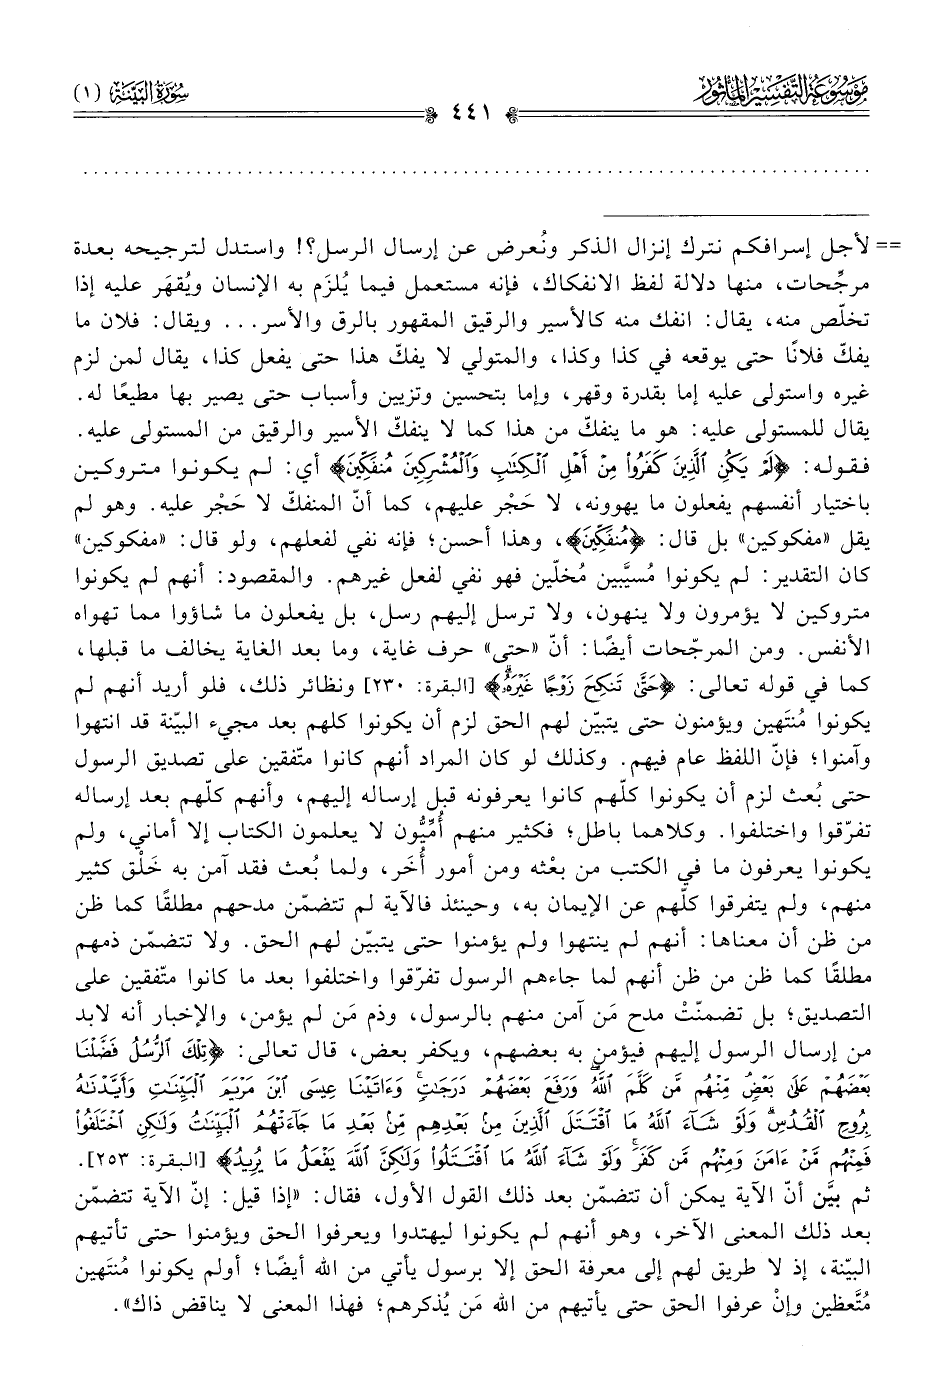 موسوعة التفسير المأثور
سورة البينة (١)
٤٤١
== لأجل إسرافكم نترك إنزال الذكر ونُعرض عن إرسال الرسل؟! واستدل لترجيحه بعدة
مرجِّحات، منها دلالة لفظ الانفكاك، فإنه مستعمل فيما يُلزَم به الإنسان ويُقهَر عليه إذا
تخلّص منه، يقال: انفك منه كالأسير والرقيق المقهور بالرق والأسر... ويقال: فلان ما
يفكّ فلانًا حتى يوقعه في كذا وكذا، والمتولي لا يفكّ هذا حتى يفعل كذا، يقال لمن لزم
غيره واستولى عليه إما بقدرة وقهر، وإما بتحسين وتزيين وأسباب حتى يصير بها مطيعًا له.
يقال للمستولى عليه: هو ما ينفكّ من هذا كما لا ينفكّ الأسير والرقيق من المستولى عليه.
فقوله: ﴿لَمْ يَكُنِ ٱلَّذِينَ كَفَرُوا۟ مِنْ أَهْلِ ٱلْكِتَٰبِ وَٱلْمُشْرِكِينَ مُنفَكِّينَ﴾ أي: لم يكونوا متروكين
باختيار أنفسهم يفعلون ما يهوونه، لا حَجْر عليهم، كما أنّ المنفكّ لا حَجْر عليه. وهو لم
يقل «مفكوكين» بل قال: ﴿مُنفَكِّينَ﴾، وهذا أحسن؛ فإنه نفي لفعلهم، ولو قال: «مفكوكين»
كان التقدير: لم يكونوا مُسيَّبين مُخلّين فهو نفي لفعل غيرهم. والمقصود: أنهم لم يكونوا
متروكين لا يؤمرون ولا ينهون، ولا ترسل إليهم رسل، بل يفعلون ما شاؤوا مما تهواه
الأنفس. ومن المرجّحات أيضًا: أنّ «حتى» حرف غاية، وما بعد الغاية يخالف ما قبلها،
كما في قوله تعالى: ﴿حَتَّىٰ تَنكِحَ زَوْجًا غَيْرَهُۥ﴾ [البقرة: ٢٣٠] ونظائر ذلك، فلو أريد أنهم لم
يكونوا مُنتَهين ويؤمنون حتى يتبيّن لهم الحق لزم أن يكونوا كلهم بعد مجيء البيّنة قد انتهوا
وآمنوا؛ فإنّ اللفظ عام فيهم. وكذلك لو كان المراد أنهم كانوا متّفقين على تصديق الرسول
حتى بُعث لزم أن يكونوا كلّهم كانوا يعرفونه قبل إرساله إليهم، وأنهم كلّهم بعد إرساله
تفرّقوا واختلفوا. وكلاهما باطل؛ فكثير منهم أُمِّيُّون لا يعلمون الكتاب إلا أماني، ولم
يكونوا يعرفون ما في الكتب من بعْثه ومن أمور أُخَر، ولما بُعث فقد آمن به خَلْق كثير
منهم، ولم يتفرقوا كلّهم عن الإيمان به، وحينئذ فالآية لم تتضمّن مدحهم مطلقًا كما ظن
من ظن أن معناها: أنهم لم ينتهوا ولم يؤمنوا حتى يتبيّن لهم الحق. ولا تتضمّن ذمهم
مطلقًا كما ظن من ظن أنهم لما جاءهم الرسول تفرّقوا واختلفوا بعد ما كانوا متّفقين على
التصديق؛ بل تضمنّتْ مدح مَن آمن منهم بالرسول، وذم مَن لم يؤمن، والإخبار أنه لابد
من إرسال الرسول إليهم فيؤمن به بعضهم، ويكفر بعض، قال تعالى: ﴿تِلْكَ ٱلرُّسُلُ فَضَّلْنَا
بَعْضَهُمْ عَلَىٰ بَعْضٍۘ مِّنْهُم مَّن كَلَّمَ ٱللَّهُۖ وَرَفَعَ بَعْضَهُمْ دَرَجَٰتٍۚ وَءَاتَيْنَا عِيسَى ٱبْنَ مَرْيَمَ ٱلْبَيِّنَٰتِ وَأَيَّدْنَٰهُ
بِرُوحِ ٱلْقُدُسِۗ وَلَوْ شَآءَ ٱللَّهُ مَا ٱقْتَتَلَ ٱلَّذِينَ مِنۢ بَعْدِهِم مِّنۢ بَعْدِ مَا جَآءَتْهُمُ ٱلْبَيِّنَٰتُ وَلَٰكِنِ ٱخْتَلَفُوا۟
فَمِنْهُم مَّنْ ءَامَنَ وَمِنْهُم مَّن كَفَرَۚ وَلَوْ شَآءَ ٱللَّهُ مَا ٱقْتَتَلُوا۟ وَلَٰكِنَّ ٱللَّهَ يَفْعَلُ مَا يُرِيدُ﴾ [البقرة: ٢٥٣].
ثم بيَّن أنّ الآية يمكن أن تتضمّن بعد ذلك القول الأول، فقال: «إذا قيل: إنّ الآية تتضمّن
بعد ذلك المعنى الآخر، وهو أنهم لم يكونوا ليهتدوا ويعرفوا الحق ويؤمنوا حتى تأتيهم
البيّنة، إذ لا طريق لهم إلى معرفة الحق إلا برسول يأتي من الله أيضًا؛ أولم يكونوا مُنتَهين
مُتَّعظين وإنْ عرفوا الحق حتى يأتيهم من الله مَن يُذكرهم؛ فهذا المعنى لا يناقض ذاك».